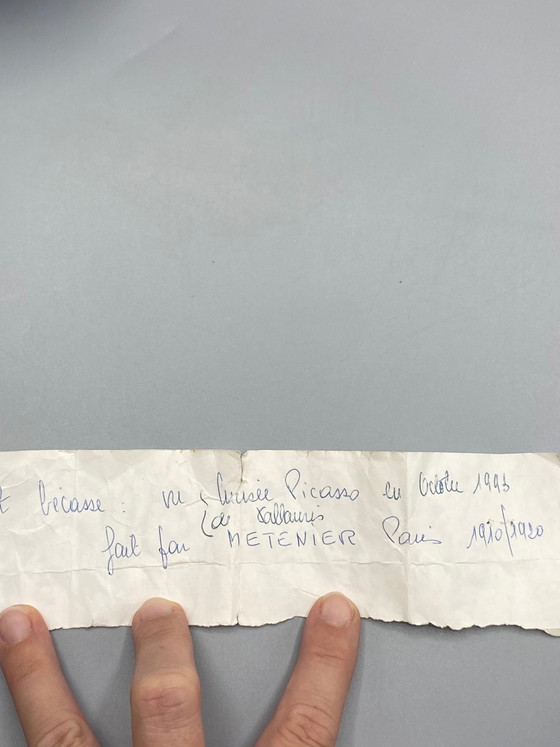 t bécasse : vu Musée Picasso en Octobre 1993
(de Vallauris
fait par METENIER Paris 1910/1920